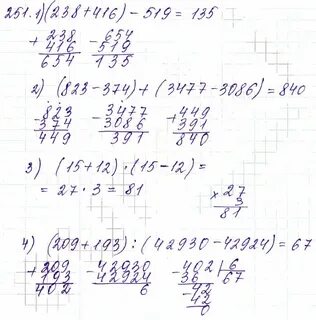 251. 1) (238 + 416) - 519 = 135
+ 238 - 654
416 519
654 135
2) (823 - 374) + (3477 - 3086) = 840
- 823 - 3477 + 449
374 3086 391
449 391 840
3) (15 + 12) · (15 - 12) =
= 27 · 3 = 81
× 27
3
81
4) (209 + 193) : (42930 - 42924) = 67
+ 209 - 42930 - 402 | 6
193 42924 36 67
402 6 - 42
42
0